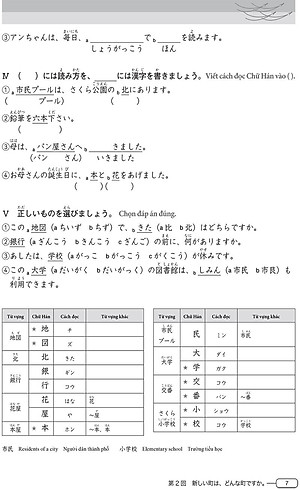 ③アンちゃんは、毎日、a＿＿＿＿＿でb＿＿＿を読みます。
しょうがっこう　ほん
Ⅳ （　）には読み方を、＿＿＿には漢字を書きましょう。Viết cách đọc Chữ Hán vào ( ).
①a市民プールは、さくら公園のb北にあります。
（　　　プール）　（　　　）
②鉛筆を六本下さい。
（　　　）
③母は、aパン屋さんへb＿＿＿きました。
（パン　　さん）　いきました
④お母さんの誕生日に、a本とb花をあげました。
（　　　）（　　　）
Ⅴ 正しいものを選びましょう。 Chọn đáp án đúng.
①この地図（aちいず　bちず）で、bきた（a比　b北）はどちらですか。
②銀行（aぎんこう　bきんこう　cぎんご）の前に、何がありますか。
③あしたは、学校（aがっこ　bがっこう　cがくこう）が休みです。
④この大学（aだいがく　bだいがっく）の図書館は、bしみん（a市民　b市良）も
利用できます。
Từ vựng　Chữ Hán　Từ vựng　Từ vựng khác
地図　＊　地　チ
＊　図　ズ
北　北　きた
銀行　銀　ギン
行　コウ
花屋　花　はな　花
屋　や　～屋
本　＊　本　ホン　～本、本
Từ vựng　Chữ Hán　Từ vựng　Từ vựng khác
市民プール　民　ミン　市民
大学　大　ダイ
＊　学　ガク
交番　＊　交　コウ
＊　番　バン　～番
さくら小学校　＊　小　ショウ
＊　校　コウ　学校
市民　Residents of a city　Người dân thành phố　小学校　Elementary school　Trường tiểu học
第２回　新しい町は、どんな町ですか。　7